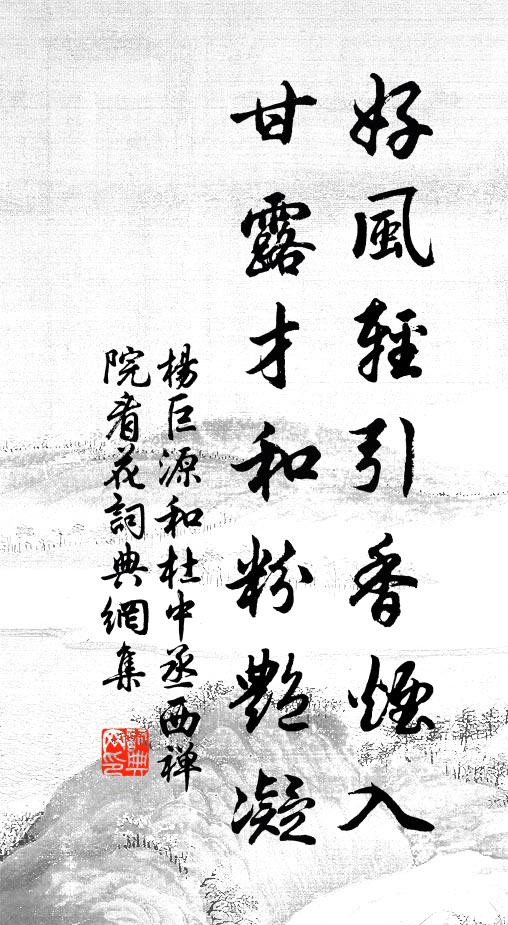 好風輕引香煙入
甘露才和粉艷凝
楊巨源和杜中丞西禅
院看花詞典網集